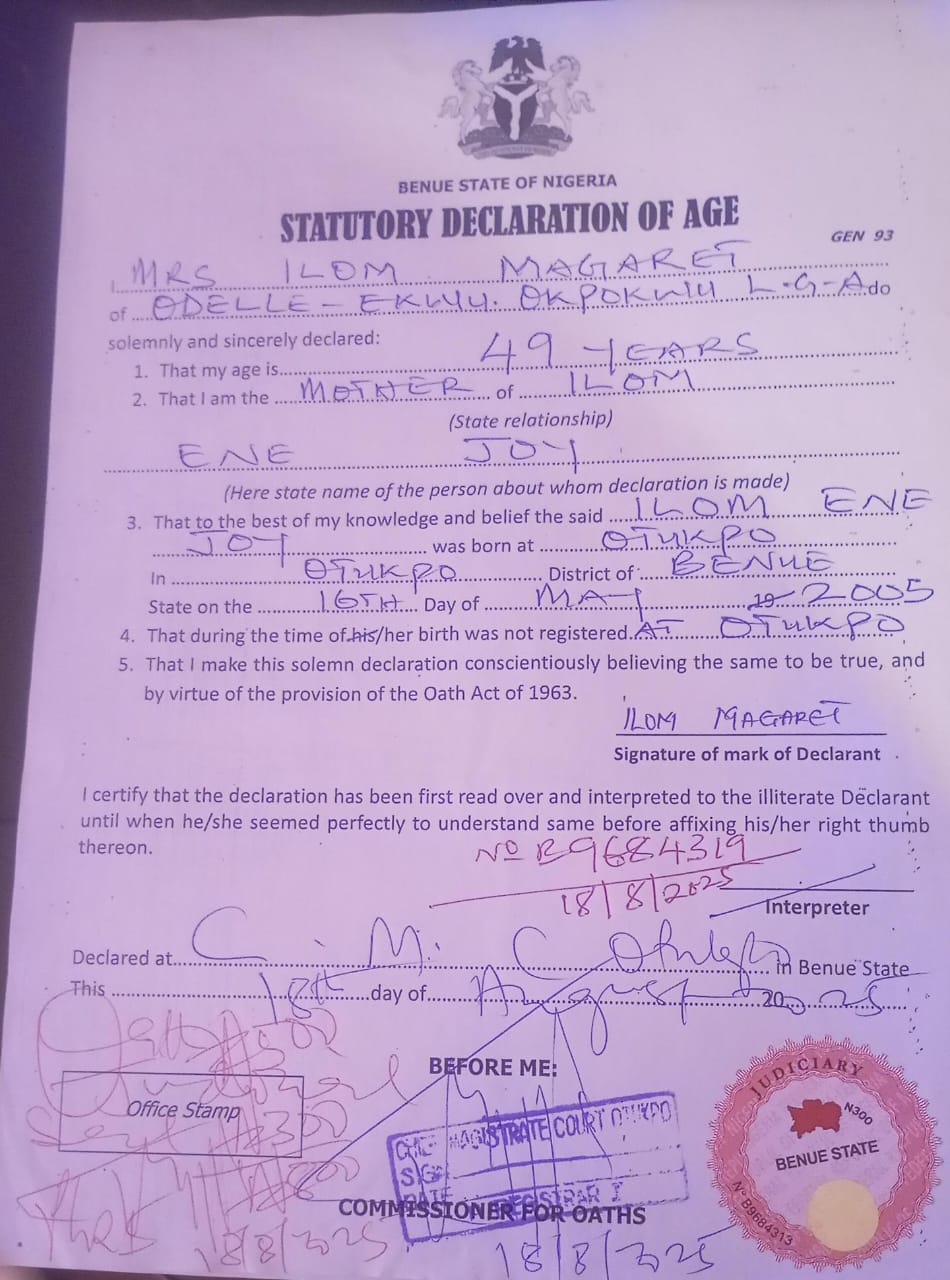 BENUE STATE OF NIGERIA
STATUTORY DECLARATION OF AGE
GEN 93
I, MRS ILOM MAGARET
of ODELLE-EKWU. OKPOKWU L.G.A do
solemnly and sincerely declared:
1. That my age is 49 YEARS
2. That I am the MOTHER of ILOM
(State relationship)
ENE JOY
(Here state name of the person about whom declaration is made)
3. That to the best of my knowledge and belief the said ILOM ENE
JOY was born at OTUKPO
In OTUKPO District of BENUE
State on the 16TH Day of MAY 19 2005
4. That during the time of his/her birth was not registered. AT OTUKPO
5. That I make this solemn declaration conscientiously believing the same to be true, and
by virtue of the provision of the Oath Act of 1963.
ILOM MAGARET
Signature of mark of Declarant
I certify that the declaration has been first read over and interpreted to the illiterate Declarant
until when he/she seemed perfectly to understand same before affixing his/her right thumb
thereon.
No B9684319
18/8/2025
Interpreter
Declared at C. M. C in Benue State
This 18th day of August 2025
BEFORE ME:
Office Stamp
CHIEF MAGISTRATE COURT OTUKPO
SIGN
DATE
REGISTRAR I
COMMISSIONER FOR OATHS
18/8/2025
18/8/2025
JUDICIARY
N300
BENUE STATE
No B9684313